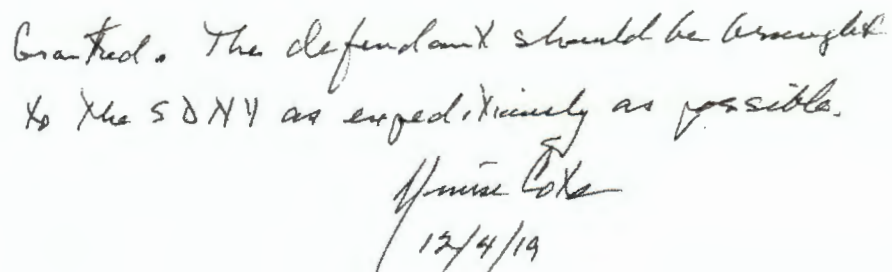 Granted. The defendant should be brought
to the SDNY as expeditiously as possible.
Denise Cote
12/4/19